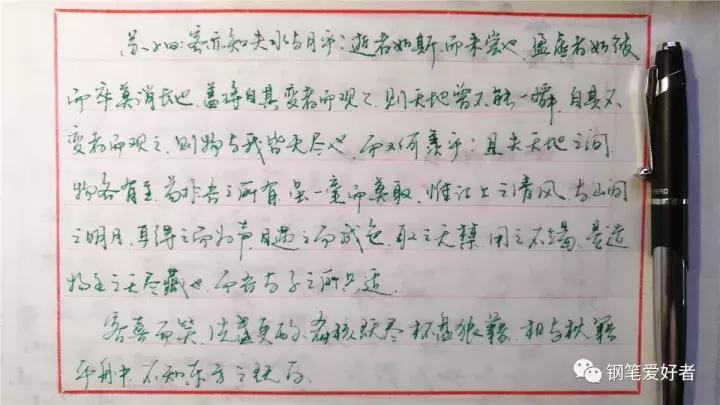 苏子曰：客亦知夫水与月乎？逝者如斯，而未尝往也，盈虚者如彼
而卒莫消长也，盖将自其变者而观之，则天地曾不能一瞬，自其不
变者而观之，则物与我皆无尽也，而又何羡乎？且夫天地之间，
物各有主，苟非吾之所有，虽一毫而莫取，惟江上之清风，与山间
之明月，耳得之而为声，目遇之而成色，取之无禁，用之不竭，是造
物者之无尽藏也，而吾与子之所共适。
客喜而笑，洗盏更酌，肴核既尽，杯盘狼藉，相与枕藉
乎舟中，不知东方之既白。
HERO
钢笔爱好者